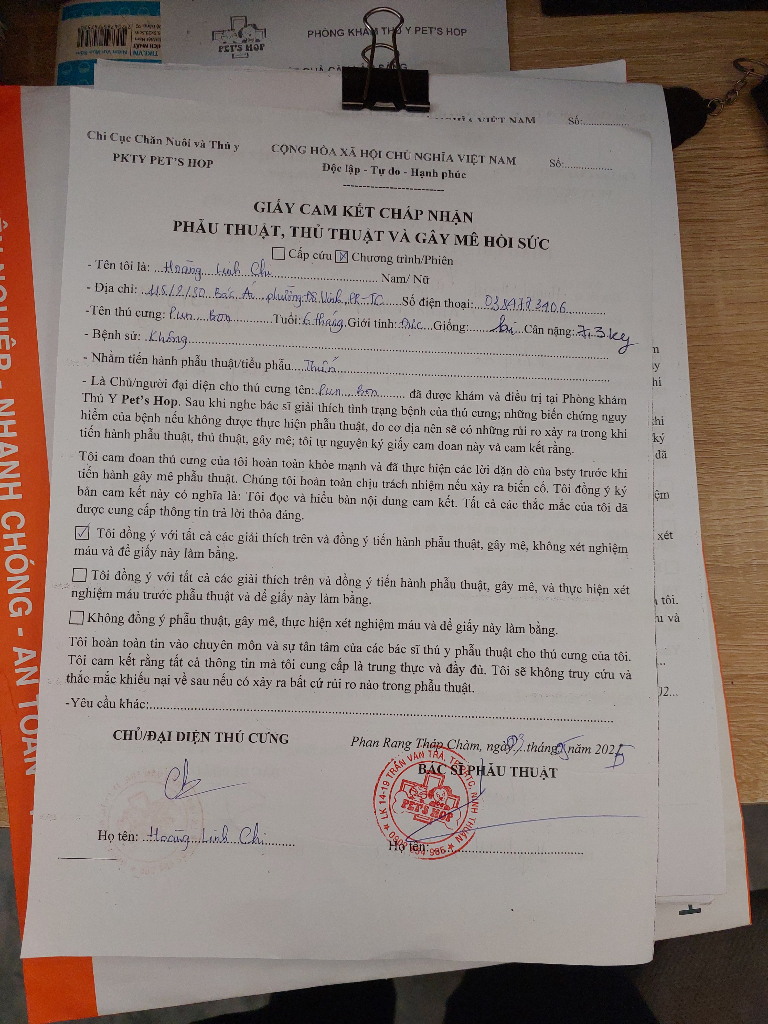 PHÒNG KHÁM THÚ Y PET'S HOP
PET'S HOP
Số:..............
Chi Cục Chăn Nuôi và Thú y
CỘNG HÒA XÃ HỘI CHỦ NGHĨA VIỆT NAM
Số:...............
PKTY PET'S HOP
Độc lập - Tự do - Hạnh phúc
GIẤY CAM KẾT CHẤP NHẬN
PHẪU THUẬT, THỦ THUẬT VÀ GÂY MÊ HỒI SỨC
☐ Cấp cứu ☒ Chương trình/Phiên
- Tên tôi là: Hoàng Linh Chi Nam/ Nữ
- Địa chỉ: 115/2/30 Bác Ái phường Đô Vinh, PR-TC Số điện thoại:
-Tên thú cưng: Pun bon Tuổi: 6 tháng Giới tính: Đực Giống: lai Cân nặng: 7,3 kg
- Bệnh sử: Không
- Nhằm tiến hành phẫu thuật/tiểu phẫu Thiến
- Là Chủ/người đại diện cho thú cưng tên: Pun bon đã được khám và điều trị tại Phòng khám
Thú Y Pet's Hop. Sau khi nghe bác sĩ giải thích tình trạng bệnh của thú cưng; những biến chứng nguy
hiểm của bệnh nếu không được thực hiện phẫu thuật, do cơ địa nên sẽ có những rủi ro xảy ra trong khi
tiến hành phẫu thuật, thủ thuật, gây mê; tôi tự nguyện ký giấy cam đoan này và cam kết rằng.
Tôi cam đoan thú cưng của tôi hoàn toàn khỏe mạnh và đã thực hiện các lời dặn dò của bsty trước khi
tiến hành gây mê phẫu thuật. Chúng tôi hoàn toàn chịu trách nhiệm nếu xảy ra biến cố. Tôi đồng ý ký
bản cam kết này có nghĩa là: Tôi đọc và hiểu bản nội dung cam kết. Tất cả các thắc mắc của tôi đã
được cung cấp thông tin trả lời thỏa đáng.
☑ Tôi đồng ý với tất cả các giải thích trên và đồng ý tiến hành phẫu thuật, gây mê, không xét nghiệm
máu và để giấy này làm bằng.
☐ Tôi đồng ý với tất cả các giải thích trên và đồng ý tiến hành phẫu thuật, gây mê, và thực hiện xét
nghiệm máu trước phẫu thuật và để giấy này làm bằng.
☐ Không đồng ý phẫu thuật, gây mê, thực hiện xét nghiệm máu và để giấy này làm bằng.
Tôi hoàn toàn tin vào chuyên môn và sự tân tâm của các bác sĩ thú y phẫu thuật cho thú cưng của tôi.
Tôi cam kết rằng tất cả thông tin mà tôi cung cấp là trung thực và đầy đủ. Tôi sẽ không truy cứu và
thắc mắc khiếu nại về sau nếu có xảy ra bất cứ rủi ro nào trong phẫu thuật.
-Yêu cầu khác:
CHỦ/ĐẠI DIỆN THÚ CƯNG
Phan Rang Tháp Chàm, ngày 03 tháng 05 năm 2025
BÁC SĨ PHẪU THUẬT
LK 14-19 TRẦN VĂN TRÀ, NINH THUẬN
PET'S HOP
Họ tên: Hoàng Linh Chi
Họ tên:
NHANH CHÓNG - AN TOÀN